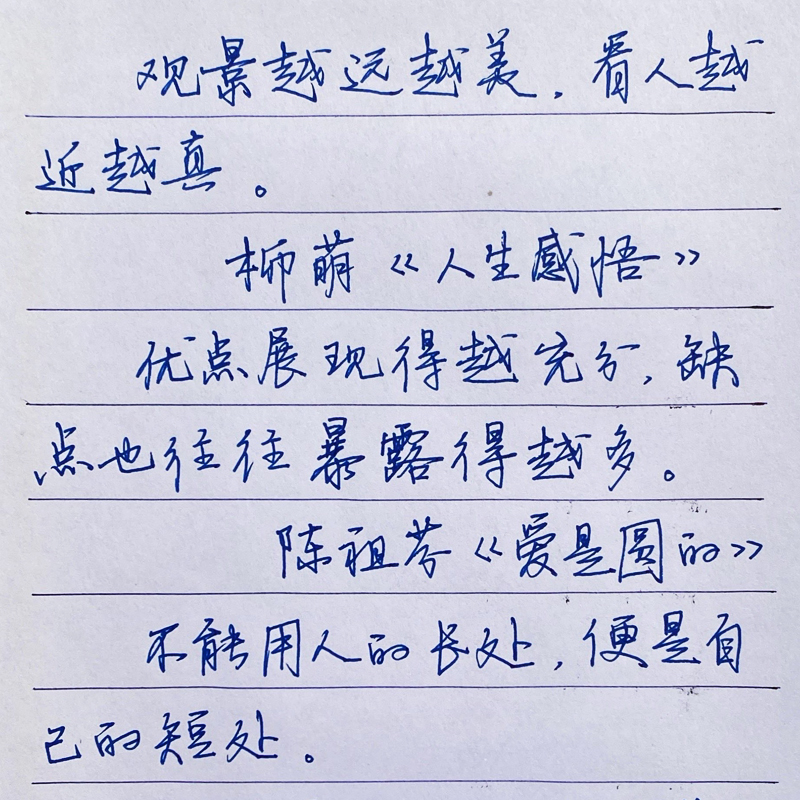 观景越远越美，看人越
近越真。
柳萌《人生感悟》
优点展现得越充分，缺
点也往往暴露得越多。
陈祖芬《爱是圆的》
不能用人的长处，便是自
己的短处。